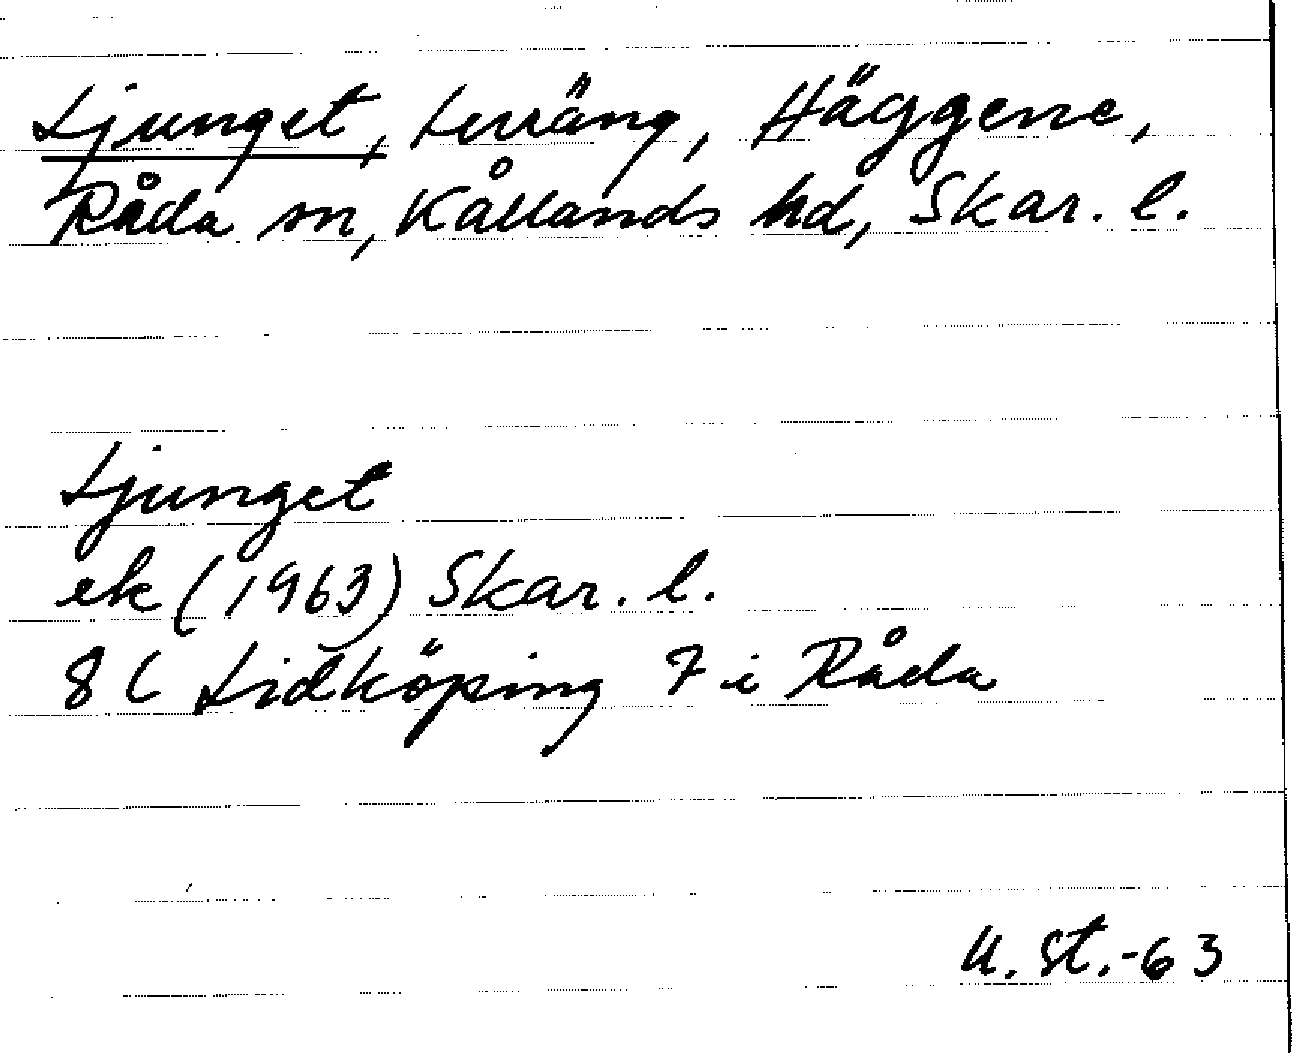 Ljunget, terräng, Häggene,
Råda sn, Kållands hd, Skar. l.
Ljunget
ek (1963) Skar. l.
8C Lidköping 7 i Råda
U. St.-63